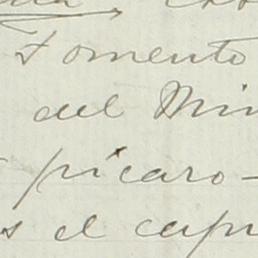 Fomento
del Min
pícaro-
s el capr